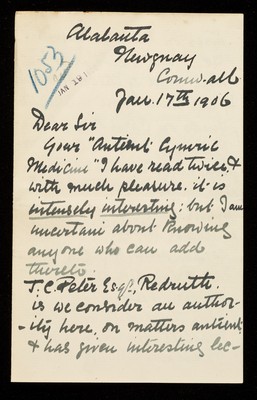 Alabanta
Newquay
Cornwall
1053
JAN 18
Jan. 17th 1906
Dear Sir
Your "Antient Cymric
Medicine" I have read twice, &
with much pleasure. it is
intensely interesting: but I am
uncertain about knowing
anyone who can add
thereto.
T. C. Peter Esqr, Redruth.
is we consider an author-
-ity here, on matters antient
& has given interesting lec-